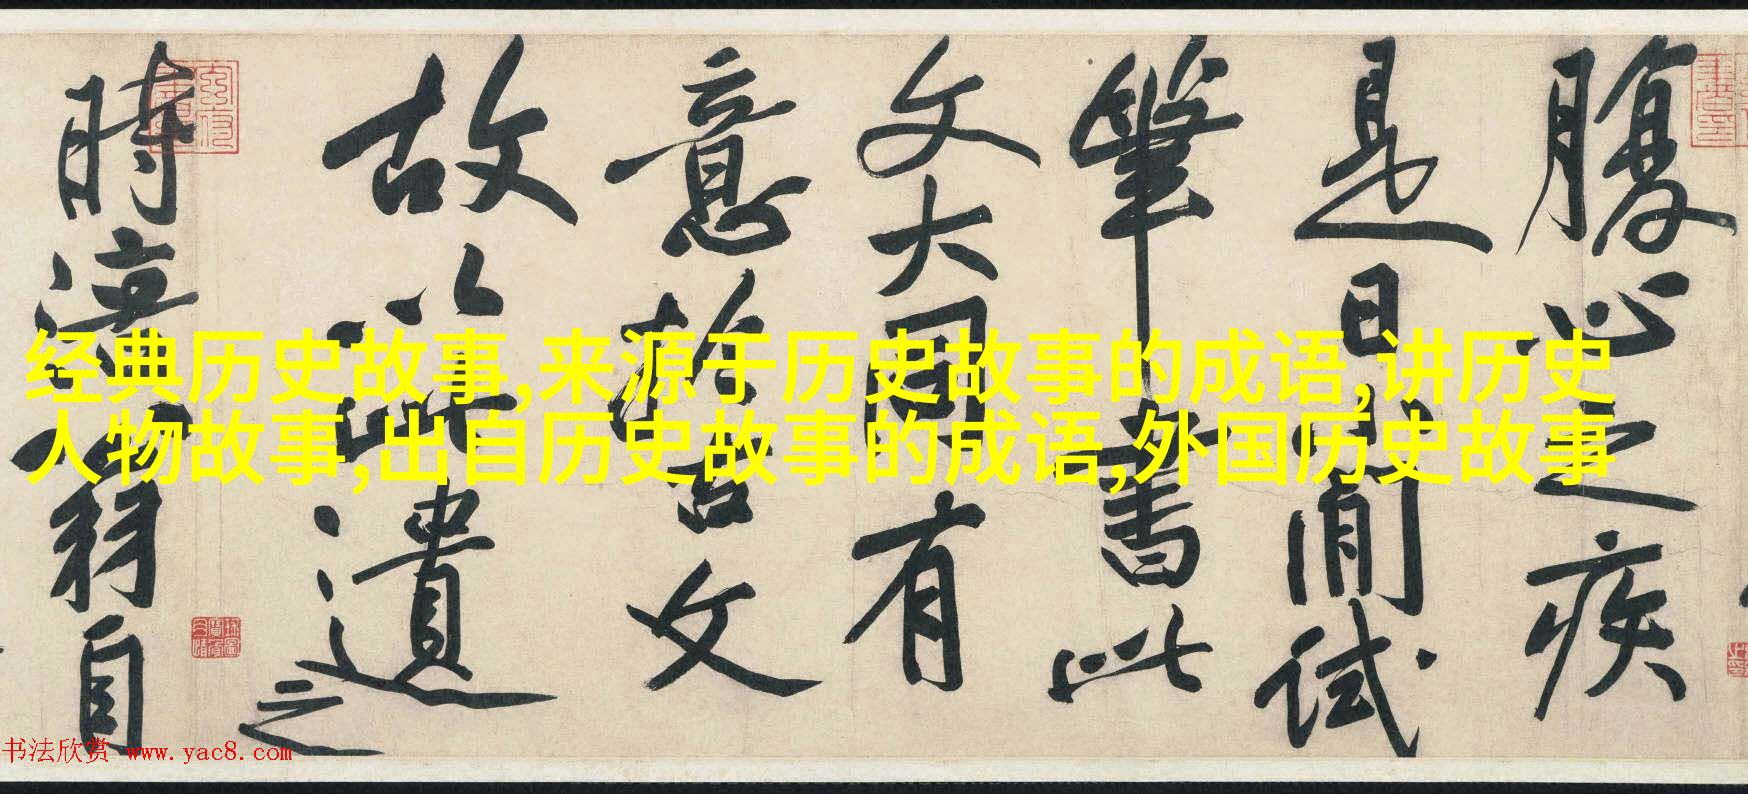 腹心之疾
是日閒試
筆書此
文大同有
意於古文
故以此遺之
時涪翁自
经典历史故事,来源于历史故事的成语,讲历史
人物故事,出自历史故事的成语,外国历史故事
书法欣赏 www.yac8.com